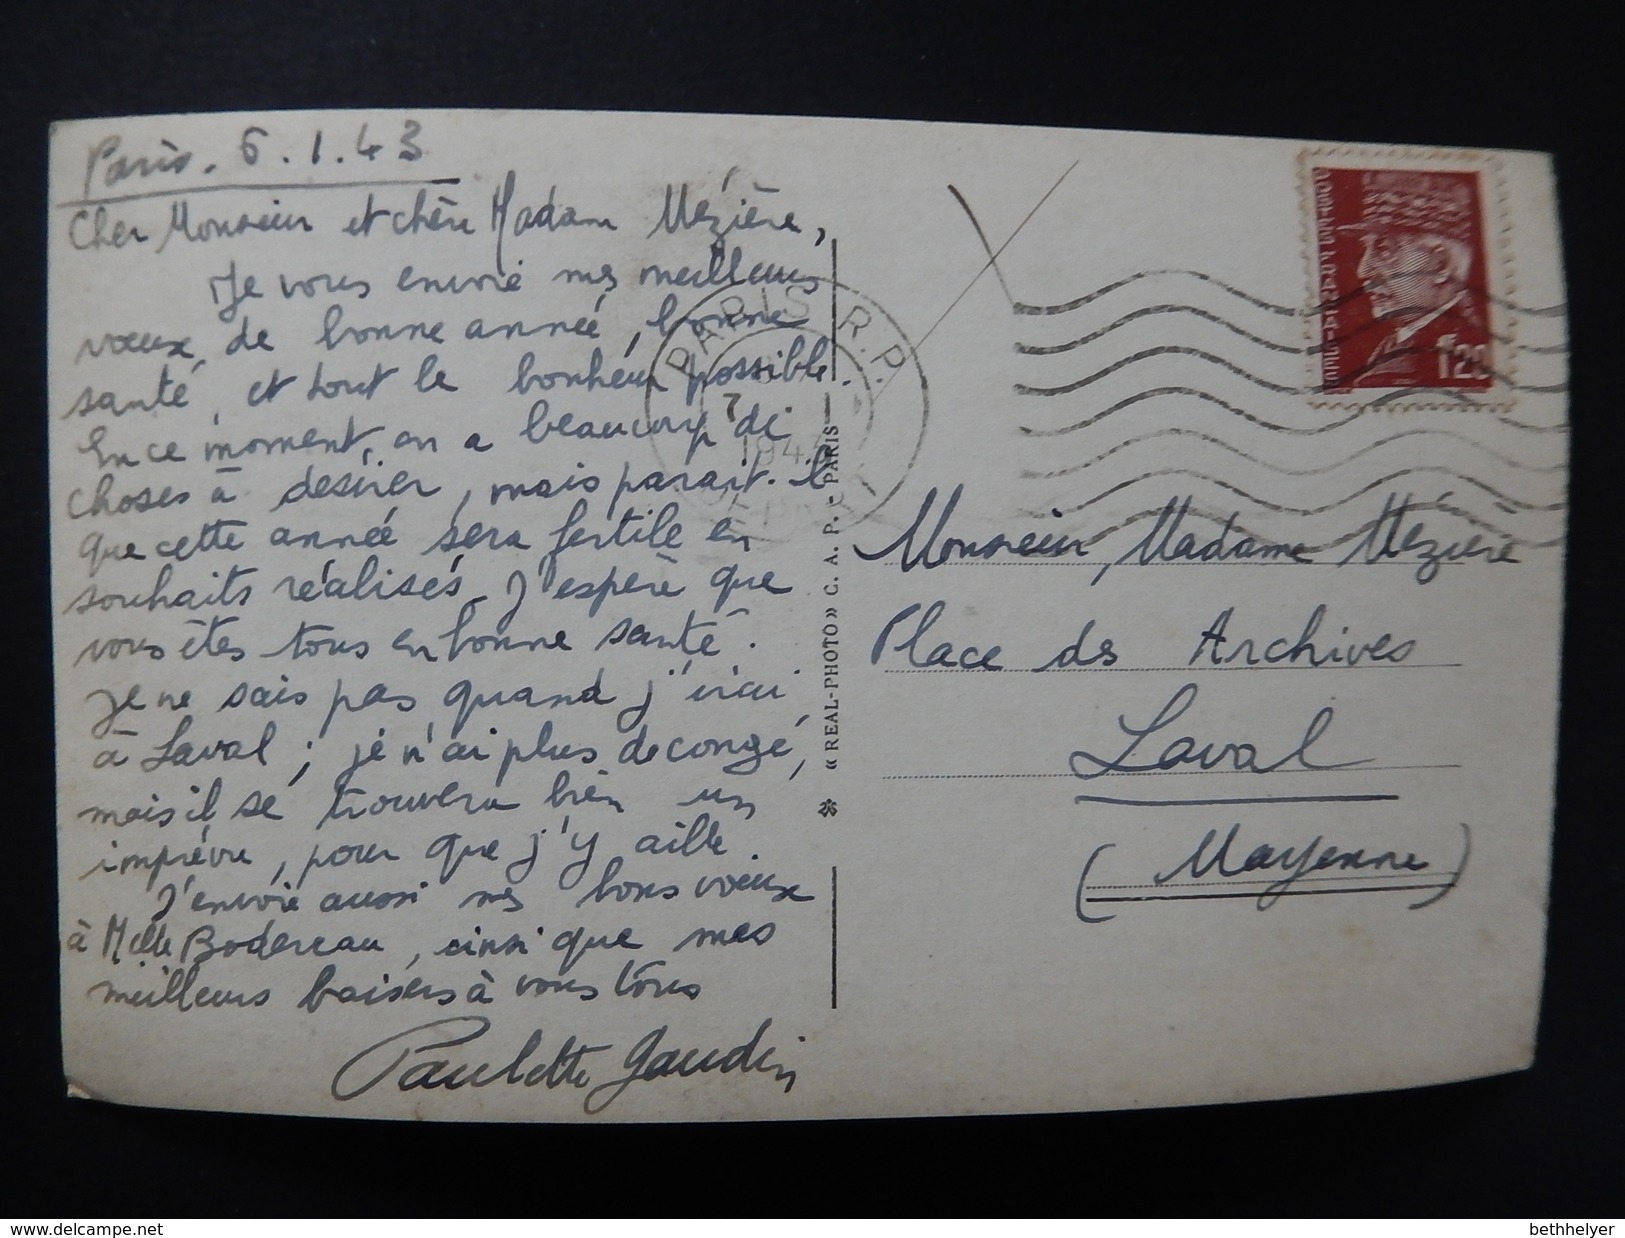 Paris. 6.1.43
Cher Monsieur et chère Madame Mézière,
Je vous envoie mes meilleurs
vœux de bonne année, bonne
santé, et tout le bonheur possible.
En ce moment, on a beaucoup de
choses à desirer, mais parait-il
que cette année sera fertile en
souhaits réalisés. J'espère que
vous êtes tous en bonne santé.
Je ne sais pas quand j'irai
à Laval ; je n'ai plus de congé,
mais il se trouvera bien un
imprévu, pour que j'y aille.
J'envoie aussi mes bons vœux
à Melle Bodereau, ainsi que mes
meilleurs baisers à vous tous
Paulette Gaudin
PARIS R.P.
7
194
❋ « REAL-PHOTO » C. A. P. - PARIS
1F20
Monsieur, Madame Mézière
Place des Archives
Laval
(Mayenne)
www.delcampe.net
bethhelyer